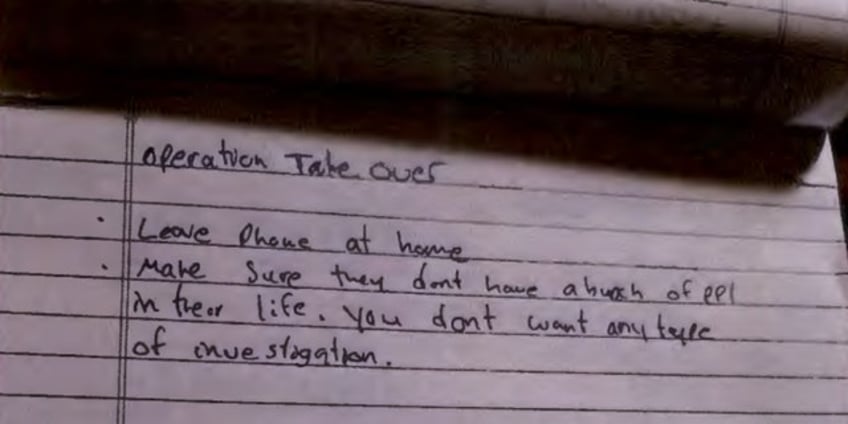 operation Take over
• Leave Phone at home
• Make sure they dont have a bunch of ppl
in their life. You dont want any type
of investigation.